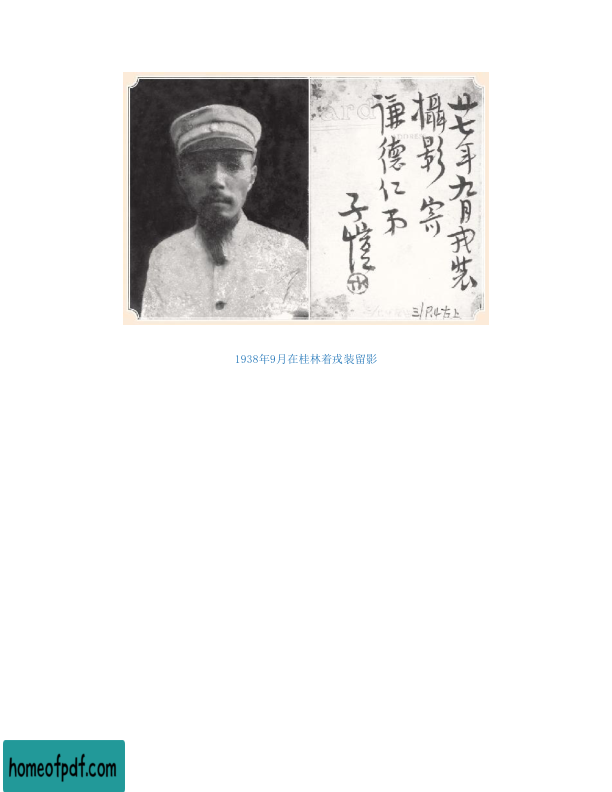 廿七年九月戎裝
攝影寄
謙德仁弟
子愷
三/P.4右上
1938年9月在桂林着戎装留影
homeofpdf.com